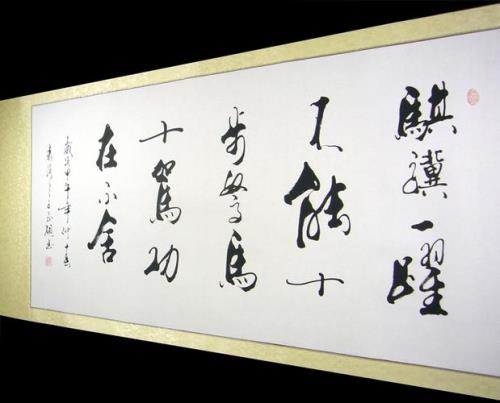 騏驥一躍
不能十
步駑馬
十駕功
在不舍
歲次甲午年仲冬